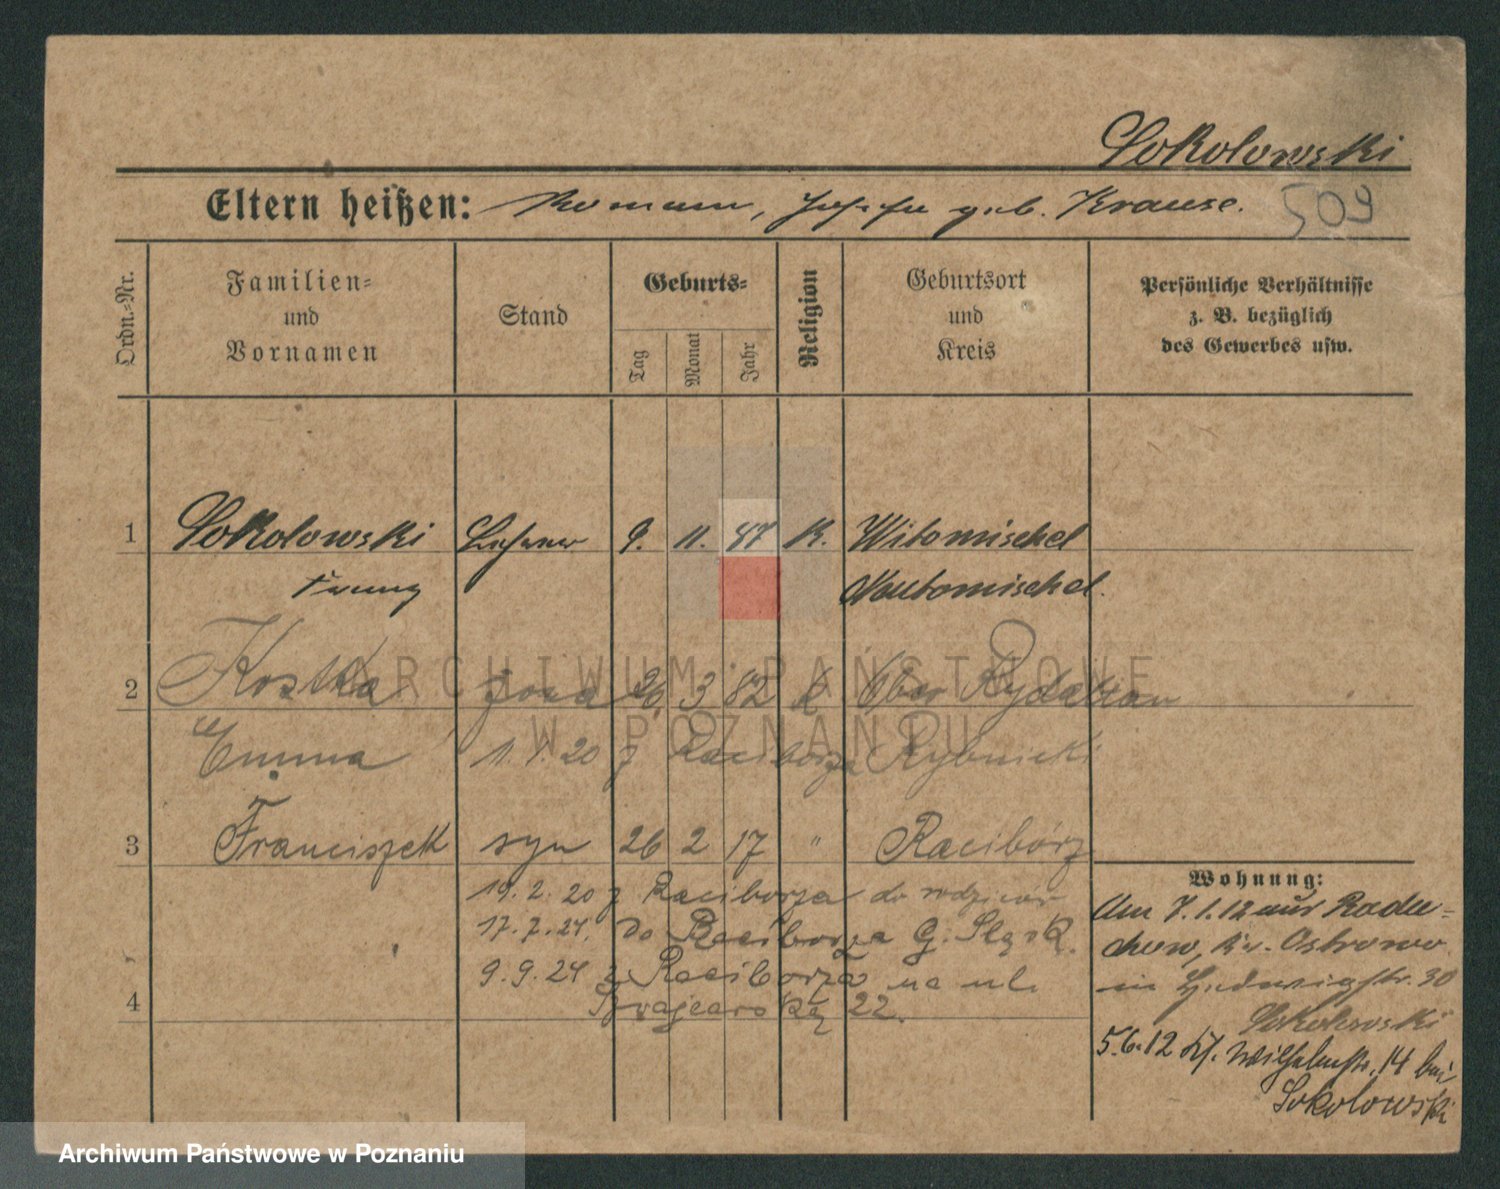 Sokolowski
Eltern heißen: Roman, Josefa geb. Krause.
509
Ordn.-Nr.
Familien-
und
Vornamen
Stand
Geburts-
Tag
Monat
Jahr
Religion
Geburtsort
und
Kreis
Persönliche Verhältnisse
z. B. bezüglich
des Gewerbes usw.
1 Sokolowski 9. 11. K. Witomischel
Franz Neutomischel.
2 Kostka żona 26 3 82 K Ober Rydultau
Emma 20 z Raciborza Rybnicki
3 Franciszek syn 26 2 17 " Racibórz
19. 2. 20 z Raciborza do rodziców
17. 7. 24. Do Raciborza G. Śląsk.
9. 9. 24 z Raciborza na ul.
4 22.
Wohnung:
Am 7.1.12 aus Radu-
chow, Kr. Ostrowo
in Hedwigstr. 30
Sokolowski
5.6.12 Wilhelmstr. 14 bei
Sokolowski
ARCHIWUM PAŃSTWOWE
W POZNANIU
Archiwum Państwowe w Poznaniu